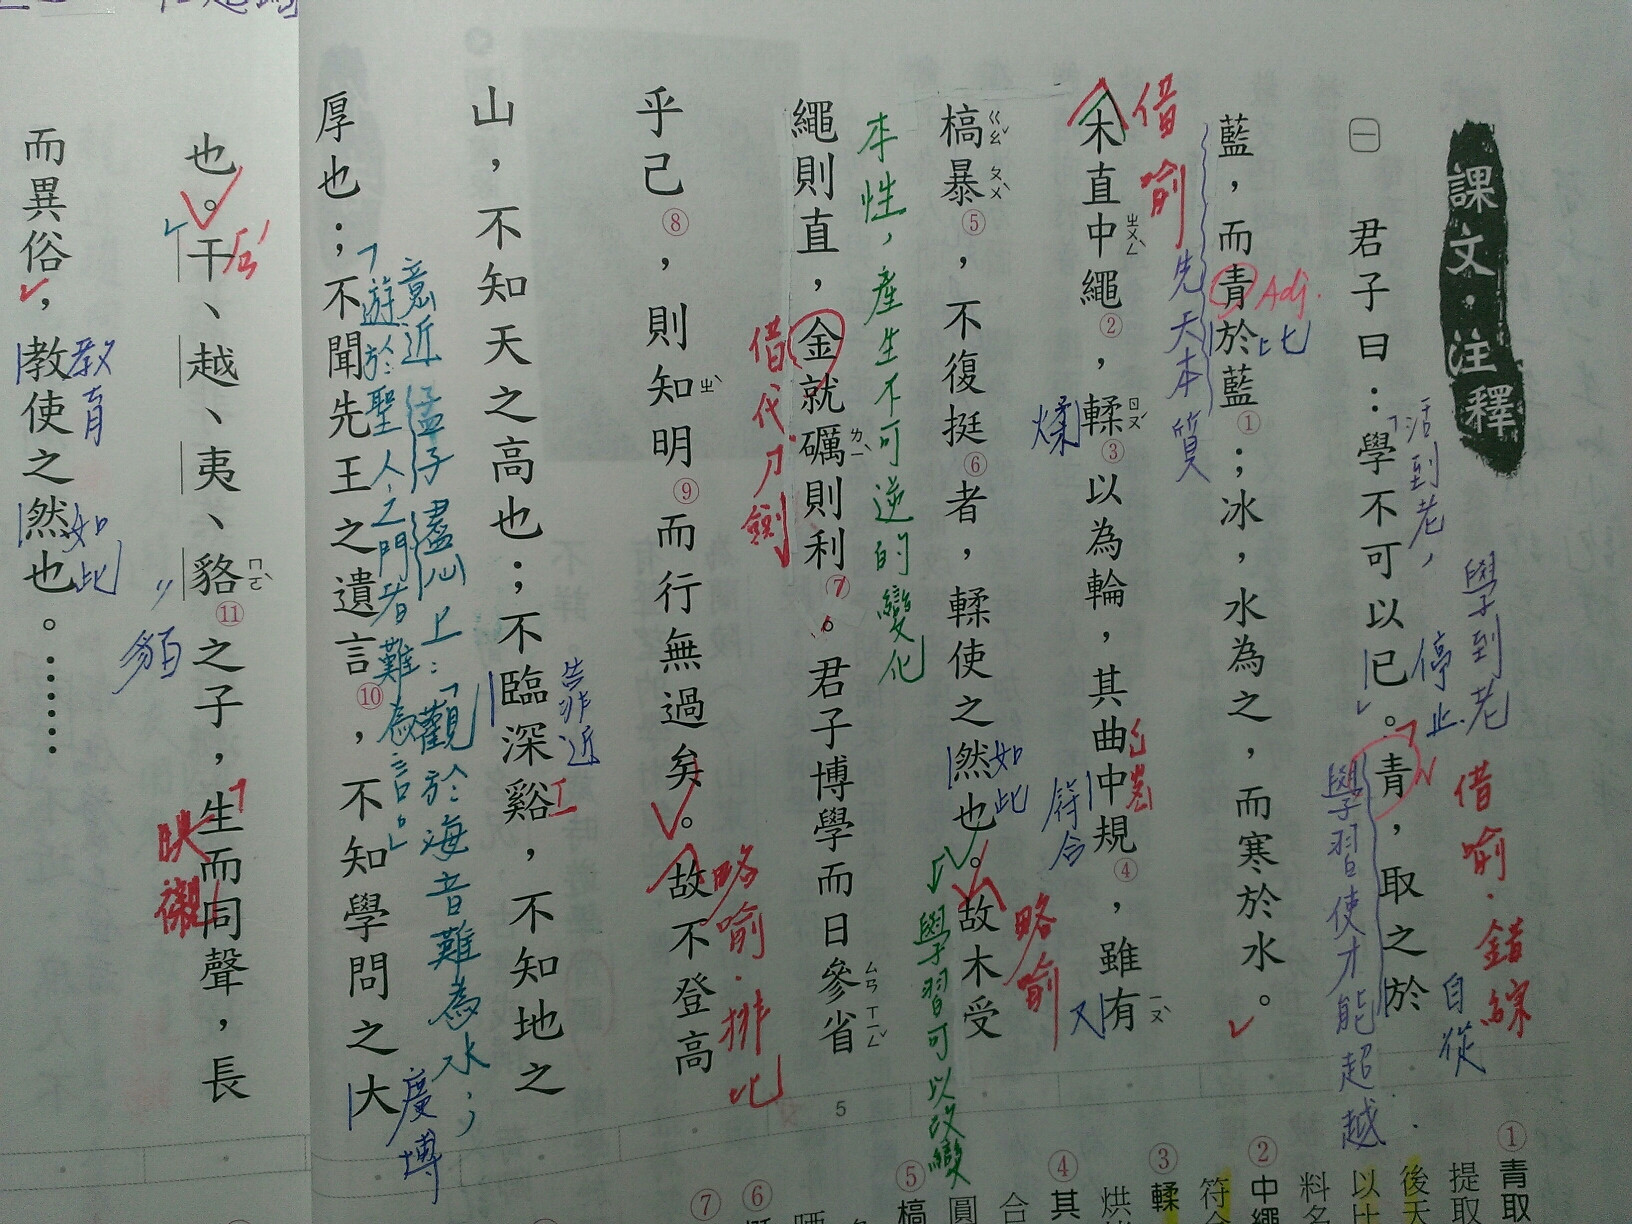 課文‧注釋
㊀
君子曰：學不可以已。青，取之於
藍，而青於藍①；冰，水為之，而寒於水。
木直中繩②，輮③以為輪，其曲中規④，雖有
槁暴⑤，不復挺⑥者，輮使之然也。故木受
繩則直，金就礪則利⑦。君子博學而日參省
乎己⑧，則知明⑨而行無過矣。故不登高
山，不知天之高也；不臨深谿，不知地之
厚也；不聞先王之遺言⑩，不知學問之大
也。干、越、夷、貉⑪之子，生而同聲，長
而異俗，教使之然也。……
ㄓㄨㄥˋ
ㄖㄡˊ
ㄧㄡˋ
ㄍㄠˇ
ㄆㄨˋ
ㄌㄧˋ
ㄙㄢ
ㄒㄧㄥˇ
ㄓˋ
ㄇㄛˋ
「活到老，
學到老
停止
借喻‧錯綜
自從
N
學習使才能超越
Adj.
比
先天本質
借喻
煣
符合
又
如此
略喻
學習可以改變
本性，產生不可逆的變化
借代刀劍
略喻‧排比
靠近
意近孟子盡心上：「觀於海者難為水；
遊於聖人之門者難為言。」
廣博
貊
映襯
教育
如此
5
①青取
提取
後天
以比
料名
②中繩
符合
③輮
烘
④其
合
圓
⑤槁
⑥
⑦